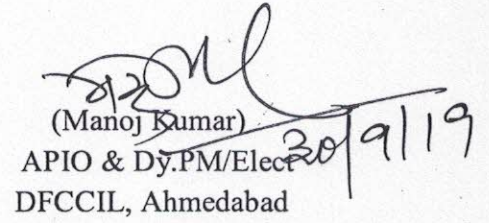 (Manoj Kumar)
APIO & Dy.PM/Elect
30/9/19
DFCCIL, Ahmedabad